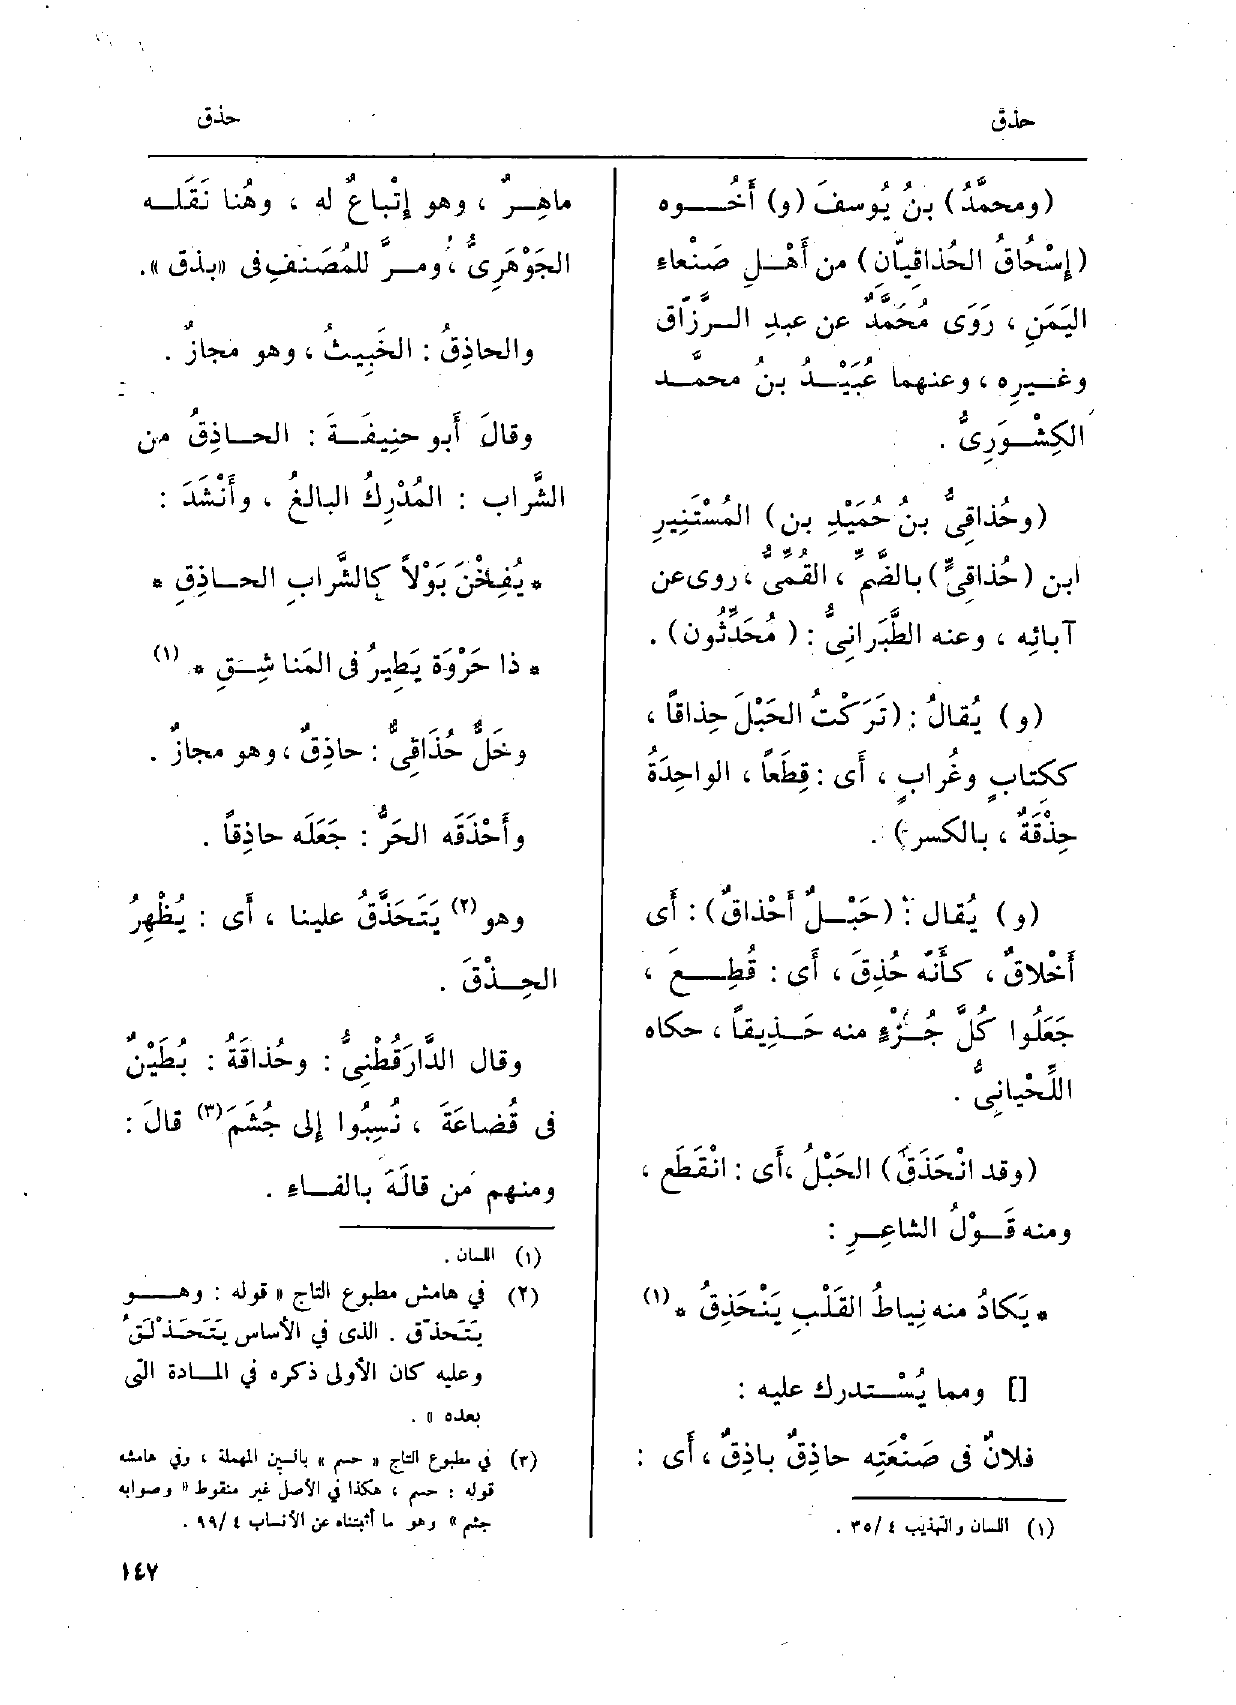 حذق
حذق
(ومحمَّدُ) بنُ يُوسفَ (و) أَخُـــوه
(إِسْحاقُ الحُذاقِيّان) من أَهْــلِ صَنْعاء
اليَمَنِ ، رَوَى مُحَمَّدٌ عن عبدِ الــرَّزّاق
وغــيرِه ، وعنهما عُبَيْــدُ بنُ محمَّــد
الكِشْــوَرِىُّ .
(وحُذاقِىُّ بنُ حُمَيْدِ بن) المُسْتَنِيرِ
ابن (حُذاقِىٍّ) بالضمِّ ، القُمِّىُّ ، روى عن
آبائِه ، وعنه الطَّبَرانِىُّ : (مُحَدِّثُون) .
(و) يُقالُ : (تَرَكْتُ الحَبْلَ حِذاقاً ،
ككِتابٍ وغُرابٍ ، أَى : قِطَعاً ، الواحِدَةُ
حِذْقَةٌ ، بالكسر) .
(و) يُقال : (حَبْــلٌ أَحْذاقٌ) : أَى
أَخْلاقٌ ، كأَنَّه حُذِقَ ، أَى : قُطِــعَ ،
جَعَلُوا كُلَّ جُــزْءٍ منه حَــذِيقاً ، حكاه
اللِّحْيانِىُّ .
(وقد انْحَذَقَ) الحَبْلُ ، أَى : انْقَطَع ،
ومنه قَــوْلُ الشاعِــرِ :
* يَكادُ منه نِياطُ القَلْبِ يَنْحَذِقُ * (١)
[] ومما يُسْــتدرك عليه :
فلانٌ فى صَنْعَتِه حاذِقٌ باذِقٌ ، أَى :
(١) اللسان والتهذيب ٤ /٣٥ .
ماهِــرٌ ، وهو إِتْباعٌ له ، وهُنا نَقَلــه
الجَوْهَرِىُّ ، ومــرَّ للمُصَنفِ فى «بذق» .
والحاذِقُ : الخَبِيثُ ، وهو مجازٌ .
وقالَ أَبو حنِيفَــةَ : الحــاذِقُ من
الشَّراب : المُدْرِكُ البالغُ ، وأَنْشَدَ :
* يُفِخْنَ بَوْلاً كالشَّرابِ الحــاذِقِ *
* ذا حَرْوَة يَطِيرُ فى المَناشِــقِ * (١)
وخَلٌّ حُذَاقِىٌّ : حاذِقٌ ، وهو مجازٌ .
وأَحْذَقَه الحَرُّ : جَعَلَه حاذِقاً .
وهو (٢) يَتَحَذَّقُ علينا ، أَى : يُظْهِرُ
الحِــذْقَ .
وقال الدَّارَقُطْنِىُّ : وحُذاقَةُ : بُطَيْنٌ
فى قُضاعَةَ ، نُسِبُوا إِلى جُشَمَ (٣) قالَ :
ومنهم مَن قالَهَ بالفــاءِ .
(١) اللسان .
(٢) في هامش مطبوع التاج « قوله : وهـــو
يَتَحذّق . الذى في الأساس يَتَحَذْلَقُ
وعليه كان الأولى ذكره في المــادة التى
بعده » .
(٣) في مطبوع التاج « حسم » بالسين المهملة ، وفي هامشه
قوله : حسم ، هكذا في الأصل غير منقوط » وصوابه
جشم » وهو ما أثبتناه عن الأنساب ٤ /٩٩ .
١٤٧